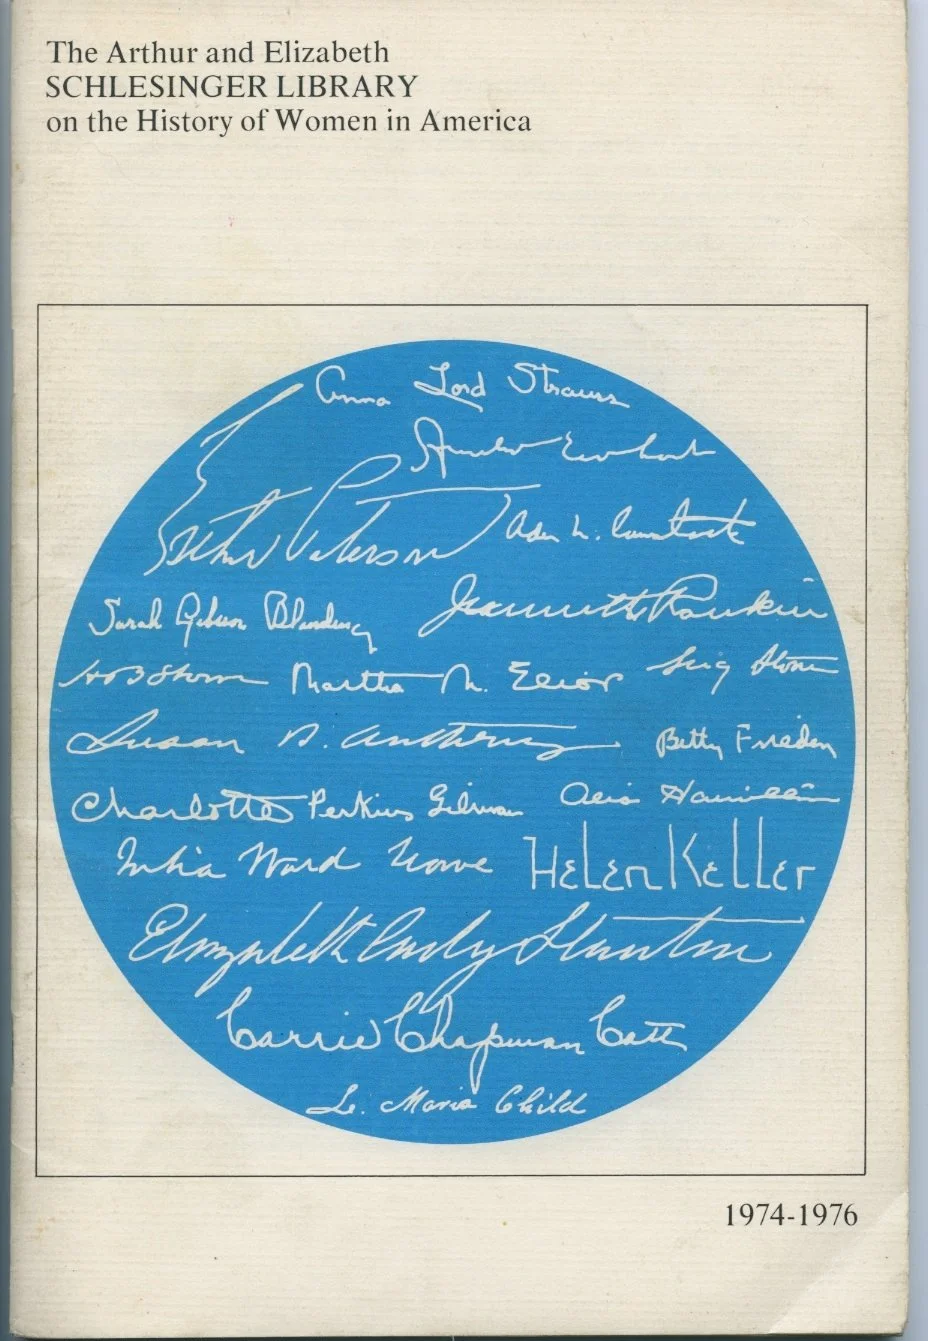 The Arthur and Elizabeth
SCHLESINGER LIBRARY
on the History of Women in America
Anna Lord Strauss
Amelia Earhart
Esther Peterson
Ada L. Comstock
Sarah Gibson Blanding
Jeannette Rankin
H B Stowe
Martha M. Eliot
Lucy Stone
Susan B. Anthony
Betty Friedan
Charlotte Perkins Gilman
Alice Hamilton
Julia Ward Howe
HELEN KELLER
Elizabeth Cady Stanton
Carrie Chapman Catt
L. Maria Child
1974-1976